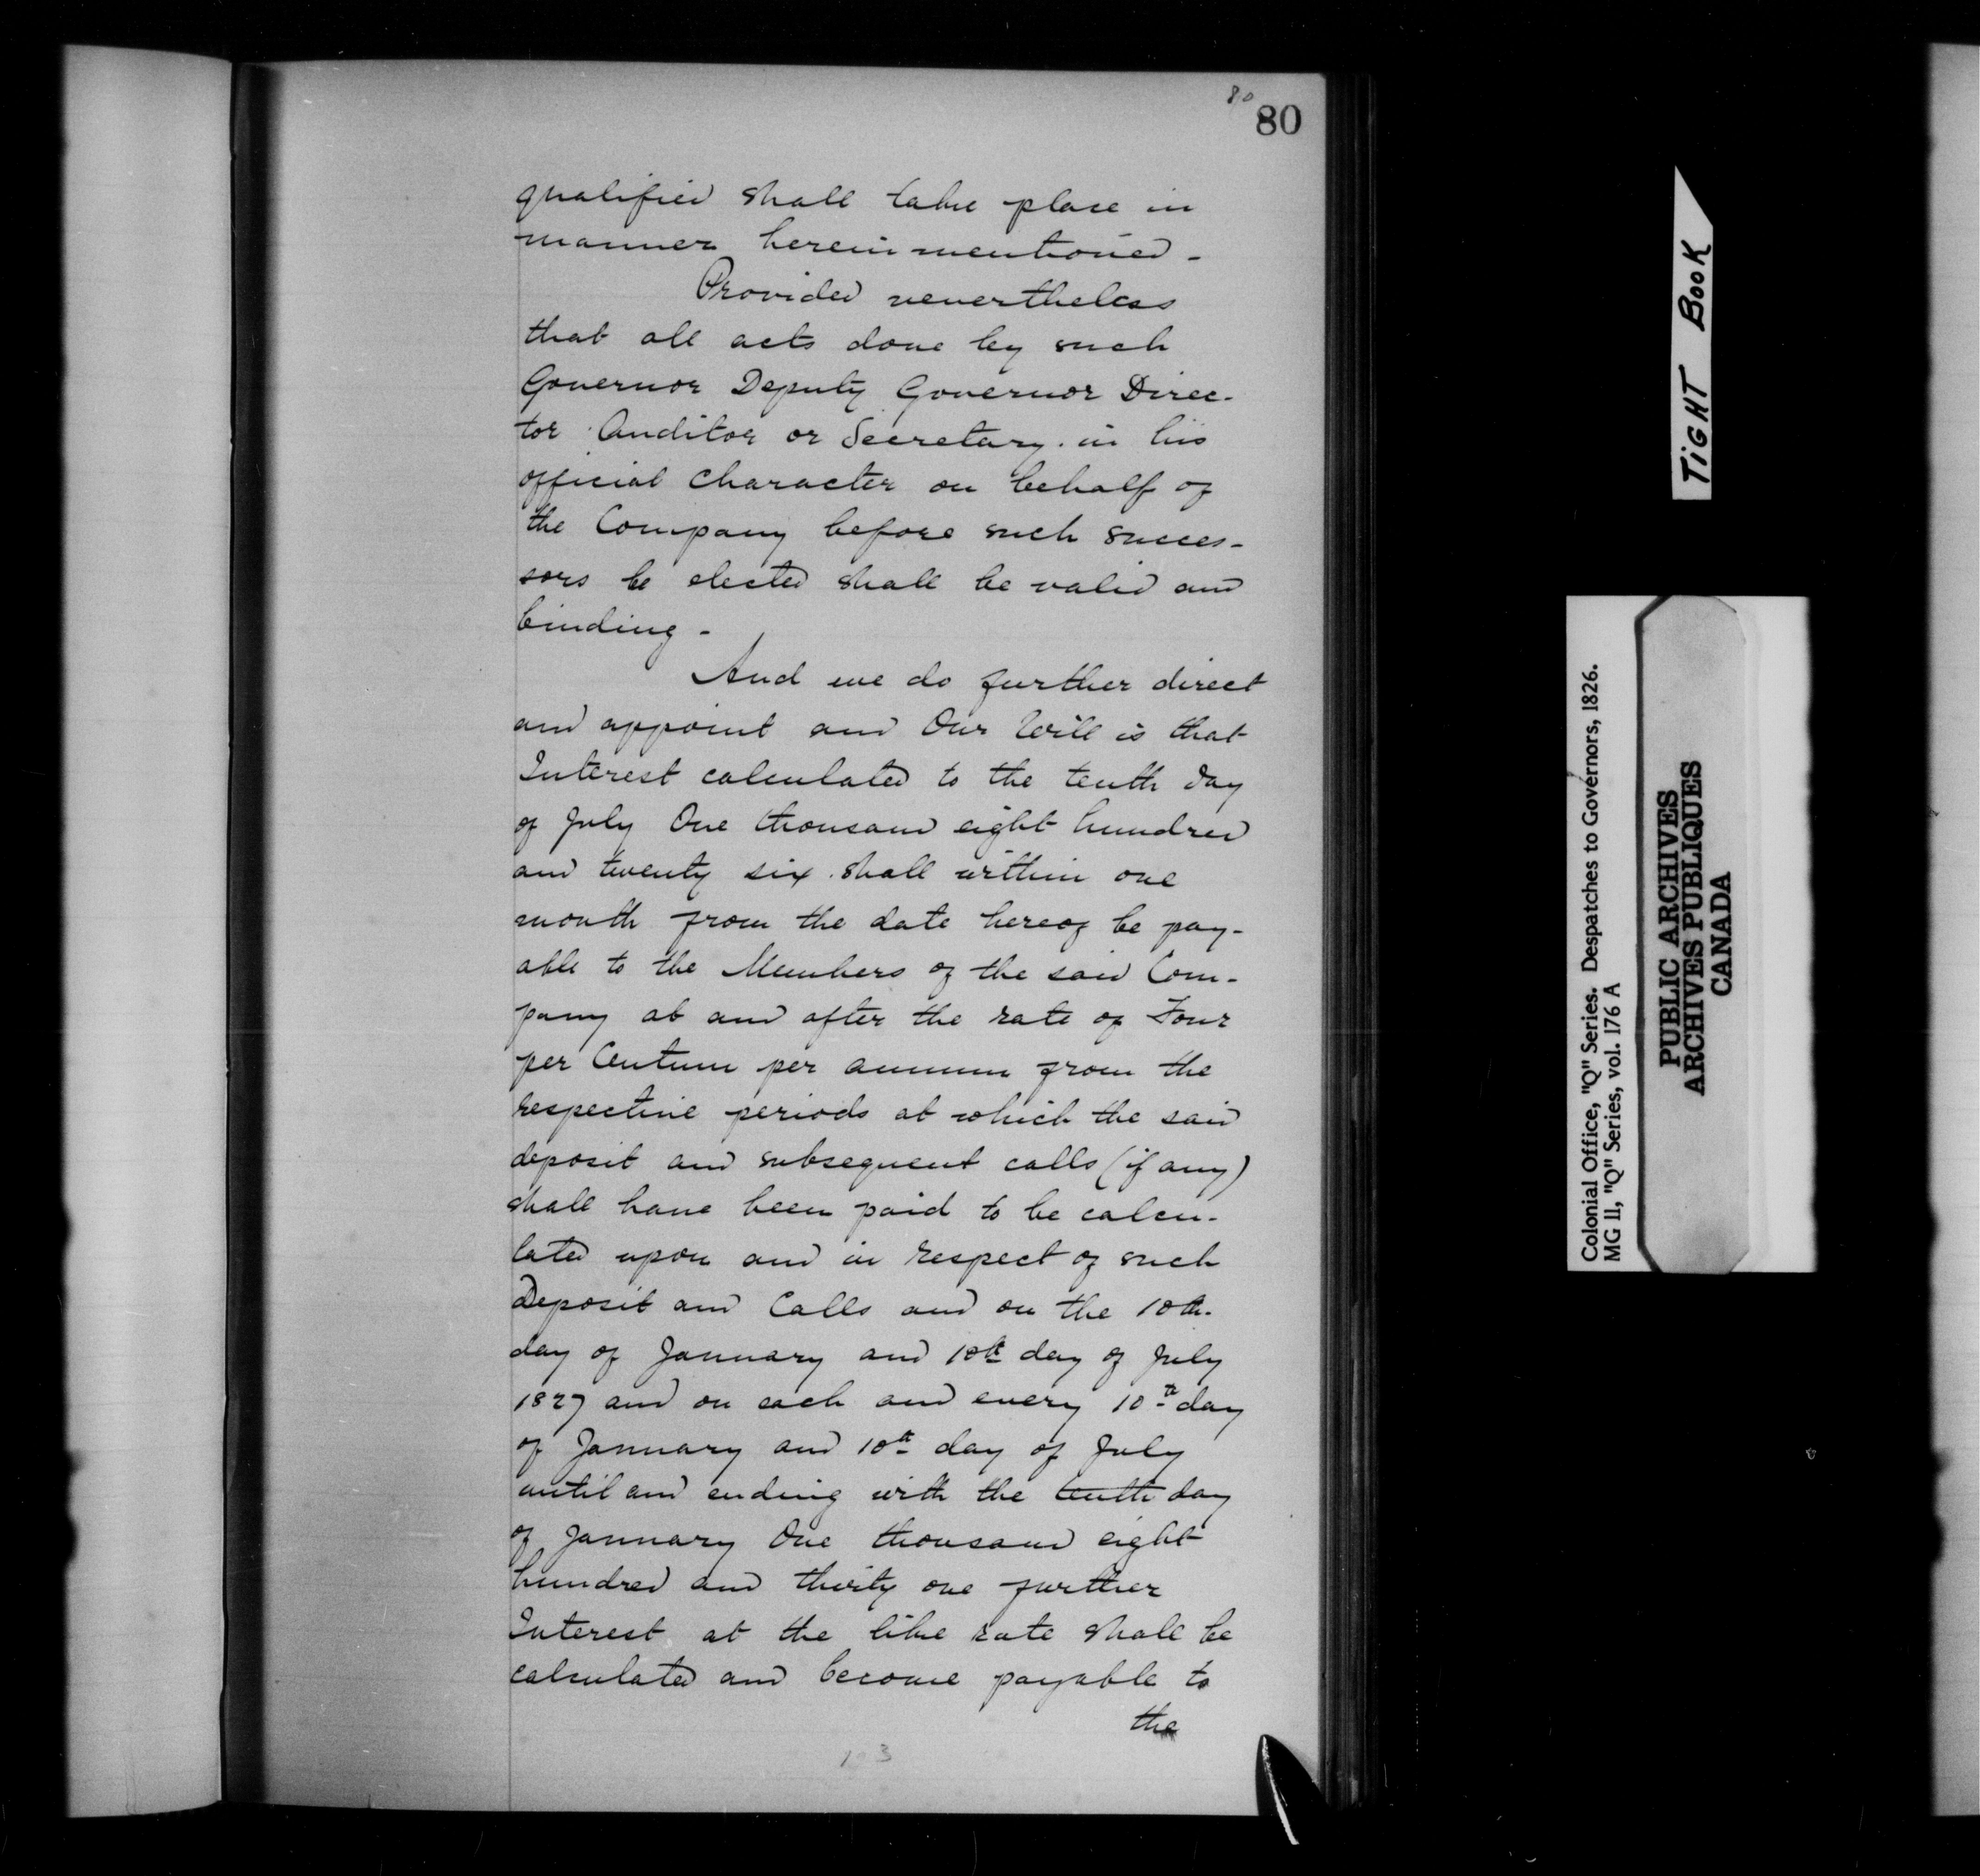 80
80
qualified shall take place in
manner herein mentioned -
Provided nevertheless
that all acts done by such
Governor Deputy Governor Direc-
tor Auditor or Secretary in his
official Character on behalf of
the Company before such succes-
sors be elected shall be valid and
binding -
And we do further direct
and appoint and Our Will is that
Interest calculated to the tenth day
of July One thousand eight hundred
and twenty six shall within one
month from the date hereof be pay-
able to the Members of the said Com-
pany at and after the rate of Four
per Centum per annum from the
respective periods at which the said
deposit and subsequent calls (if any)
shall have been paid to be calcu-
lated upon and in respect of such
Deposit and Calls and on the 10th.
day of January and 10th day of July
1827 and on each and every 10th day
of January and 10th day of July
until and ending with the tenth day
of January One thousand eight
hundred and thirty one further
Interest at the like rate shall be
calculated and become payable to
the
103
TIGHT BOOK
Colonial Office, "Q" Series. Despatches to Governors, 1826.
MG 11, "Q" Series, vol. 176 A
PUBLIC ARCHIVES
ARCHIVES PUBLIQUES
CANADA